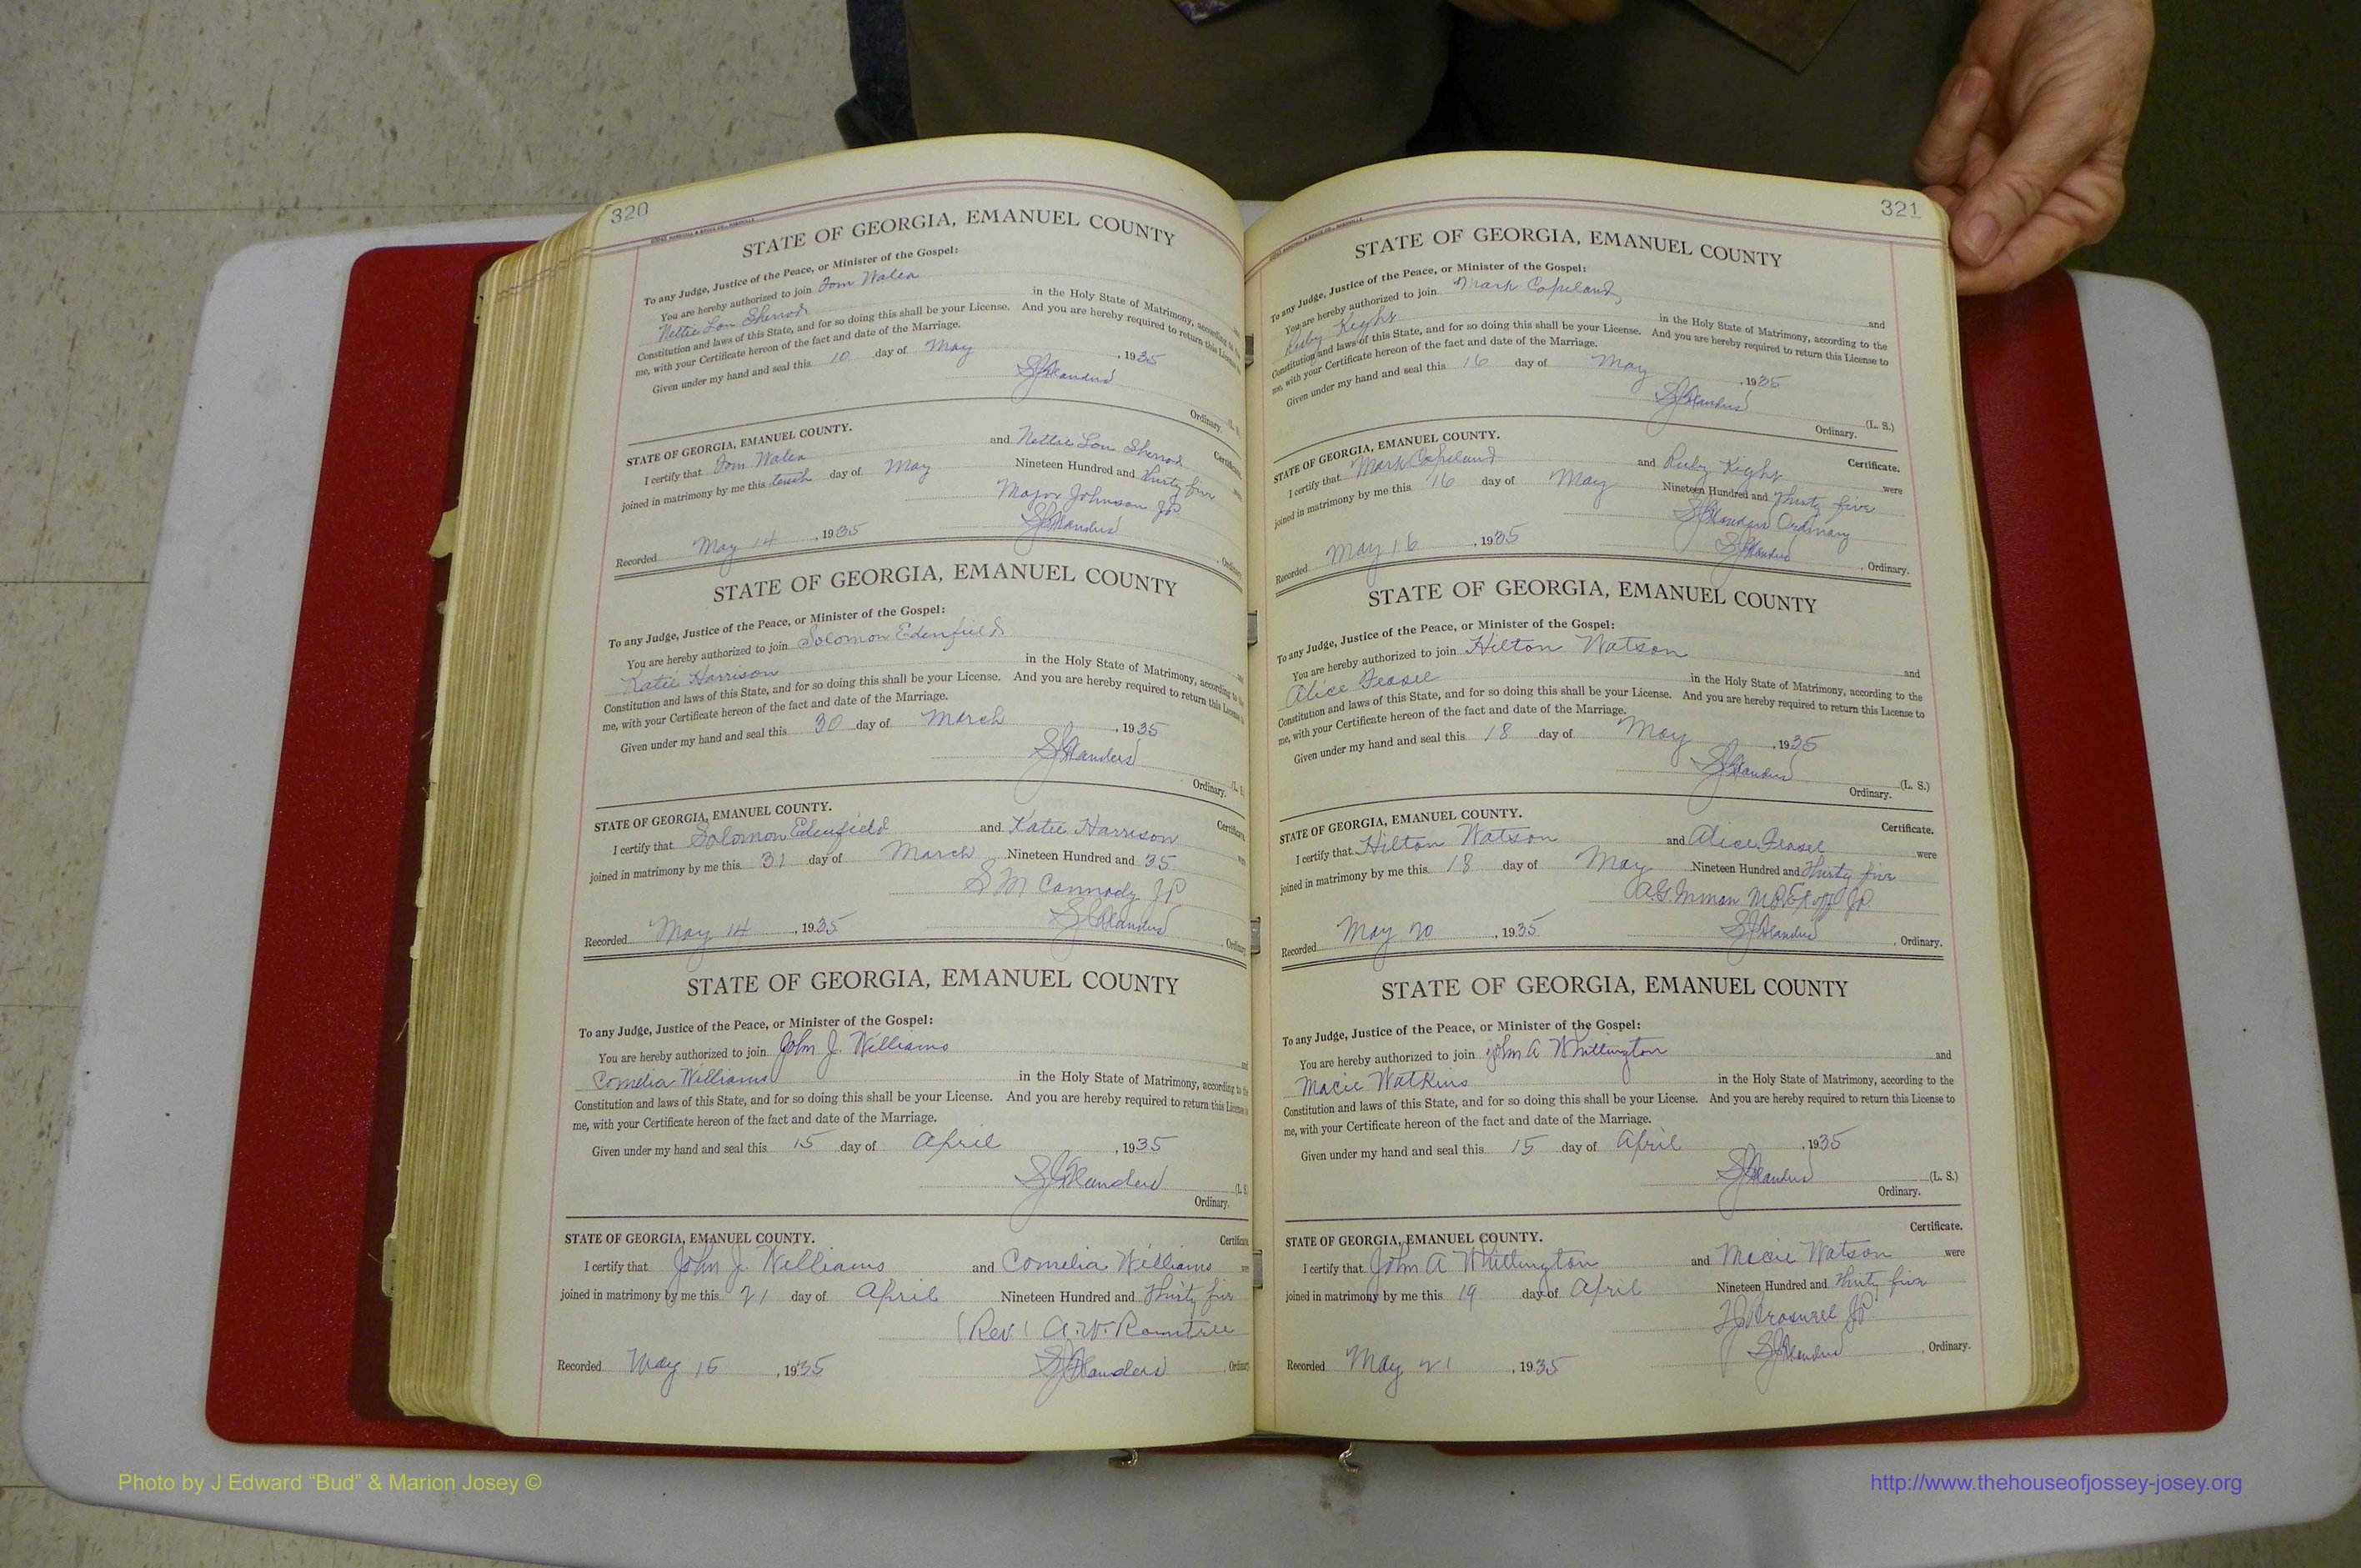 320
STATE OF GEORGIA, EMANUEL COUNTY
To any Judge, Justice of the Peace, or Minister of the Gospel:
You are hereby authorized to join Tom Walea
and
Nettie Lou Sherrod in the Holy State of Matrimony, according to the
Constitution and laws of this State, and for so doing this shall be your License. And you are hereby required to return this License
me, with your Certificate hereon of the fact and date of the Marriage.
Given under my hand and seal this 10 day of May, 1935
(L. S.
Ordinary.
STATE OF GEORGIA, EMANUEL COUNTY.
Certificate.
I certify that Tom Walea and Nettie Lou Sherrod
joined in matrimony by me this tenth day of May Nineteen Hundred and Thirty five
Major Johnson JP.
Recorded May 14, 1935 , Ordinary.
STATE OF GEORGIA, EMANUEL COUNTY
To any Judge, Justice of the Peace, or Minister of the Gospel:
You are hereby authorized to join Solomon Edenfield
Katie Harrison in the Holy State of Matrimony, according to the
Constitution and laws of this State, and for so doing this shall be your License. And you are hereby required to return this License
me, with your Certificate hereon of the fact and date of the Marriage.
Given under my hand and seal this 30 day of March, 1935
(L. S.
Ordinary.
STATE OF GEORGIA, EMANUEL COUNTY.
Certificate
I certify that Solomon Edenfield and Katie Harrison
joined in matrimony by me this 31 day of March Nineteen Hundred and 35
S M Cannady JP
Recorded May 14, 1935 , Ordinary
STATE OF GEORGIA, EMANUEL COUNTY
To any Judge, Justice of the Peace, or Minister of the Gospel:
You are hereby authorized to join John J. Williams
and
Cornelia Williams in the Holy State of Matrimony, according to the
Constitution and laws of this State, and for so doing this shall be your License. And you are hereby required to return this License
me, with your Certificate hereon of the fact and date of the Marriage.
Given under my hand and seal this 15 day of April, 1935
S J Flanders (L. S
Ordinary.
STATE OF GEORGIA, EMANUEL COUNTY.
Certificate
I certify that John J. Williams and Cornelia Williams
joined in matrimony by me this 21 day of April Nineteen Hundred and Thirty five
(Rev) A. W. Rountree
Recorded May 15, 1935 S J Flanders , Ordinary
321
STATE OF GEORGIA, EMANUEL COUNTY
To any Judge, Justice of the Peace, or Minister of the Gospel:
You are hereby authorized to join Mark Copeland
and
Ruby Kight in the Holy State of Matrimony, according to the
Constitution and laws of this State, and for so doing this shall be your License. And you are hereby required to return this License to
me, with your Certificate hereon of the fact and date of the Marriage.
Given under my hand and seal this 16 day of May, 1935
S J Flanders (L. S.)
Ordinary.
STATE OF GEORGIA, EMANUEL COUNTY.
Certificate.
I certify that Mark Copeland and Ruby Kight were
joined in matrimony by me this 16 day of May Nineteen Hundred and Thirty five
S J Flanders Ordinary
Recorded May 16, 1935 S J Flanders , Ordinary.
STATE OF GEORGIA, EMANUEL COUNTY
To any Judge, Justice of the Peace, or Minister of the Gospel:
You are hereby authorized to join Hilton Watson
and
Alice in the Holy State of Matrimony, according to the
Constitution and laws of this State, and for so doing this shall be your License. And you are hereby required to return this License to
me, with your Certificate hereon of the fact and date of the Marriage.
Given under my hand and seal this 18 day of May, 1935
S J Flanders (L. S.)
Ordinary.
STATE OF GEORGIA, EMANUEL COUNTY.
Certificate.
I certify that Hilton Watson and Alice were
joined in matrimony by me this 18 day of May Nineteen Hundred and Thirty five
A. G. Inman JP.
Recorded May 20, 1935 S J Flanders , Ordinary.
STATE OF GEORGIA, EMANUEL COUNTY
To any Judge, Justice of the Peace, or Minister of the Gospel:
You are hereby authorized to join John A Whittington
and
Macie Watkins in the Holy State of Matrimony, according to the
Constitution and laws of this State, and for so doing this shall be your License. And you are hereby required to return this License to
me, with your Certificate hereon of the fact and date of the Marriage.
Given under my hand and seal this 15 day of April, 1935
S J Flanders (L. S.)
Ordinary.
STATE OF GEORGIA, EMANUEL COUNTY.
Certificate.
I certify that John A Whittington and Macie Watson were
joined in matrimony by me this 19 day of April Nineteen Hundred and Thirty five
JP
Recorded May 21, 1935 S J Flanders , Ordinary.
Photo by J Edward “Bud” & Marion Josey ©
http://www.thehouseofjossey-josey.org